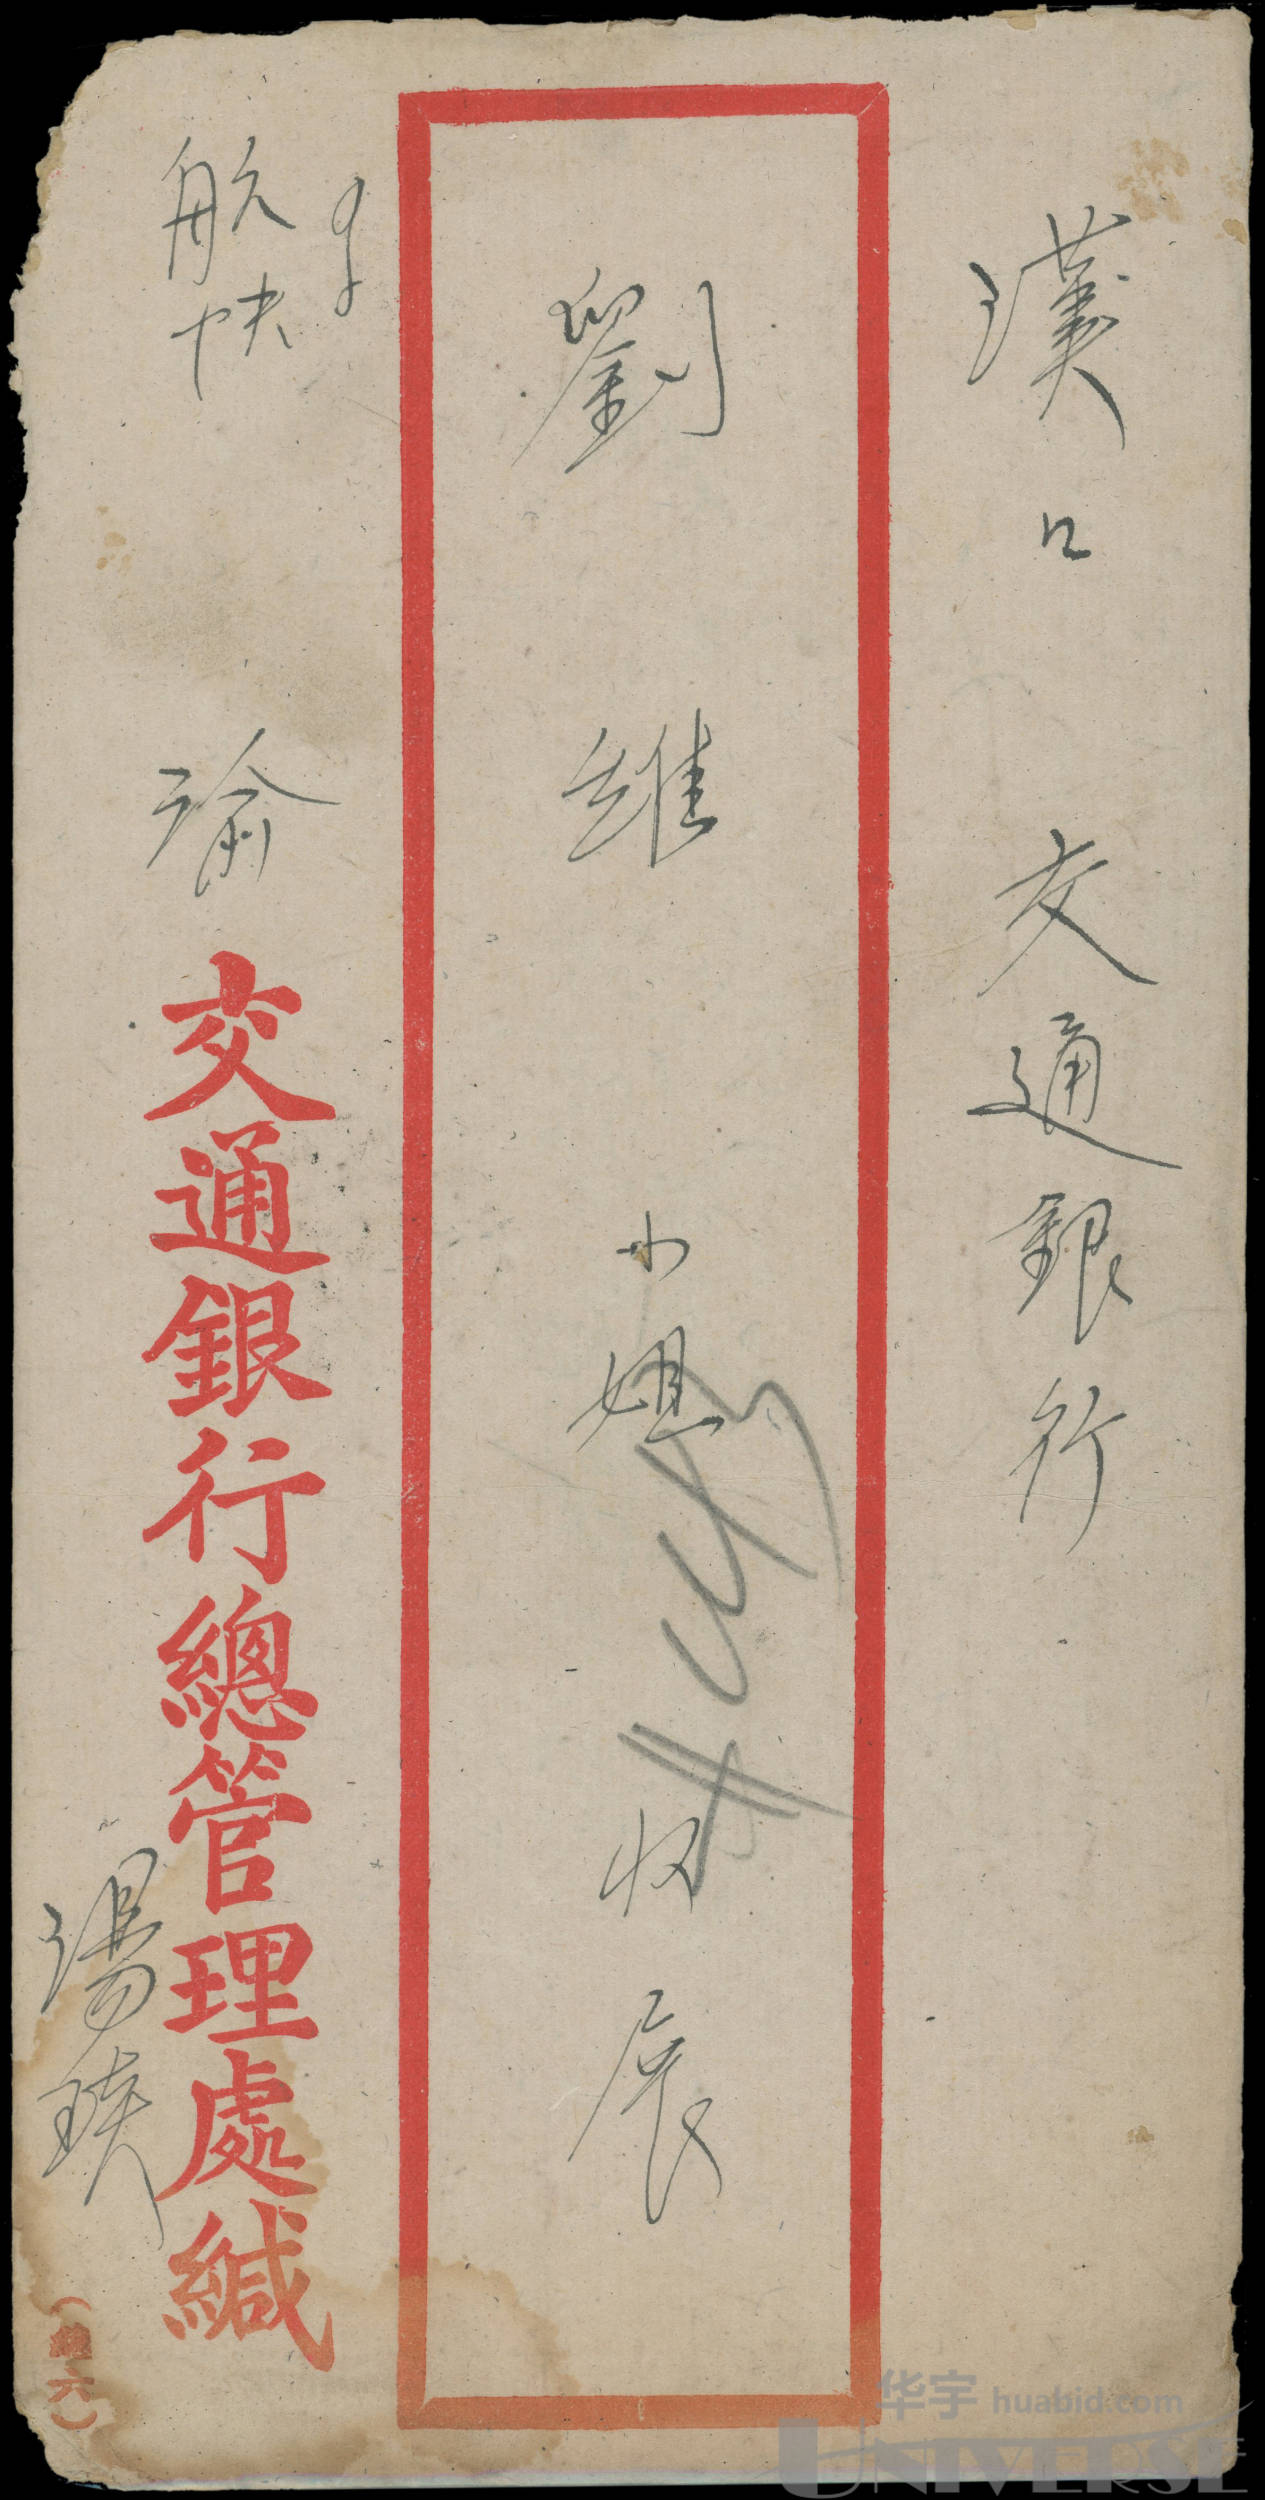 漢口 交通銀行
劉維小姐 收展
航快
渝 交通銀行總管理處緘
湯
六
华宇 huabid.com
UNIVERSE